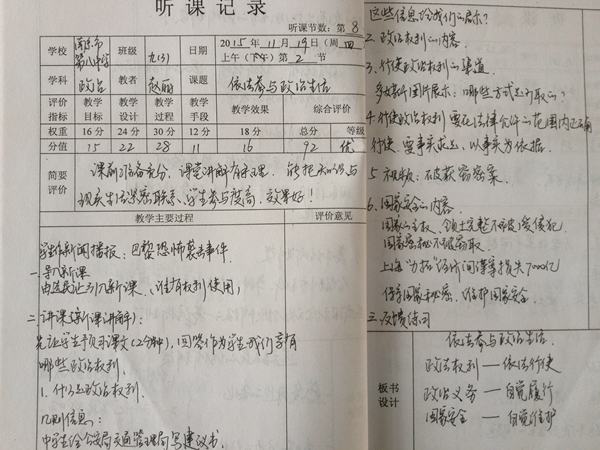 听课记录
听课节数：第 8
学校 南京市第八中学 班级 九(3) 日期 2015年11月19日(周四 上午(下午)第2节
学科 政治 教者 赵丽 课题 依法参与政治生活
评价指标 教学目标 教学设计 教学过程 教学手段 教学效果 综合评价
权重 16分 24分 30分 12分 18分 总分 等级
分值 15 22 28 11 16 92 优
简要评价 课前准备充分，课堂讲解有条理。能把知识与
现实生活紧密联系，学生参与度高，效果好！
教学主要过程 评价意见
学生作新闻播报：巴黎恐怖袭击事件
一、导入新课
由这是还引入新课、谁有权利使用，
二、讲课
先让学生预习课文(2分钟)，回答作为学生我们享有
哪些政治权利。
1. 什么是政治权利。
几则信息：
中学生给公安局交通管理局写建议书.
这些信息给我们的启示？
2. 政治权利的内容.
3. 行使政治权利的渠道.
多媒体图片展示：哪些方式是可取的？
4. 行使政治权利要在法律允许的范围内正确
行使，要事实求是、以事实为依据.
5. 视频：不破获窃密案.
6. 国家安全的内容.
国家的主权、领土完整不被侵犯.
国家秘密不被窃取.
上海“力拓”经济间谍案损失7000亿
保守国家秘密，维护国家安全
三、反馈练习
板书设计
依法参与政治生活.
政治权利—依法行使
政治义务—自觉履行
国家安全—自觉维护